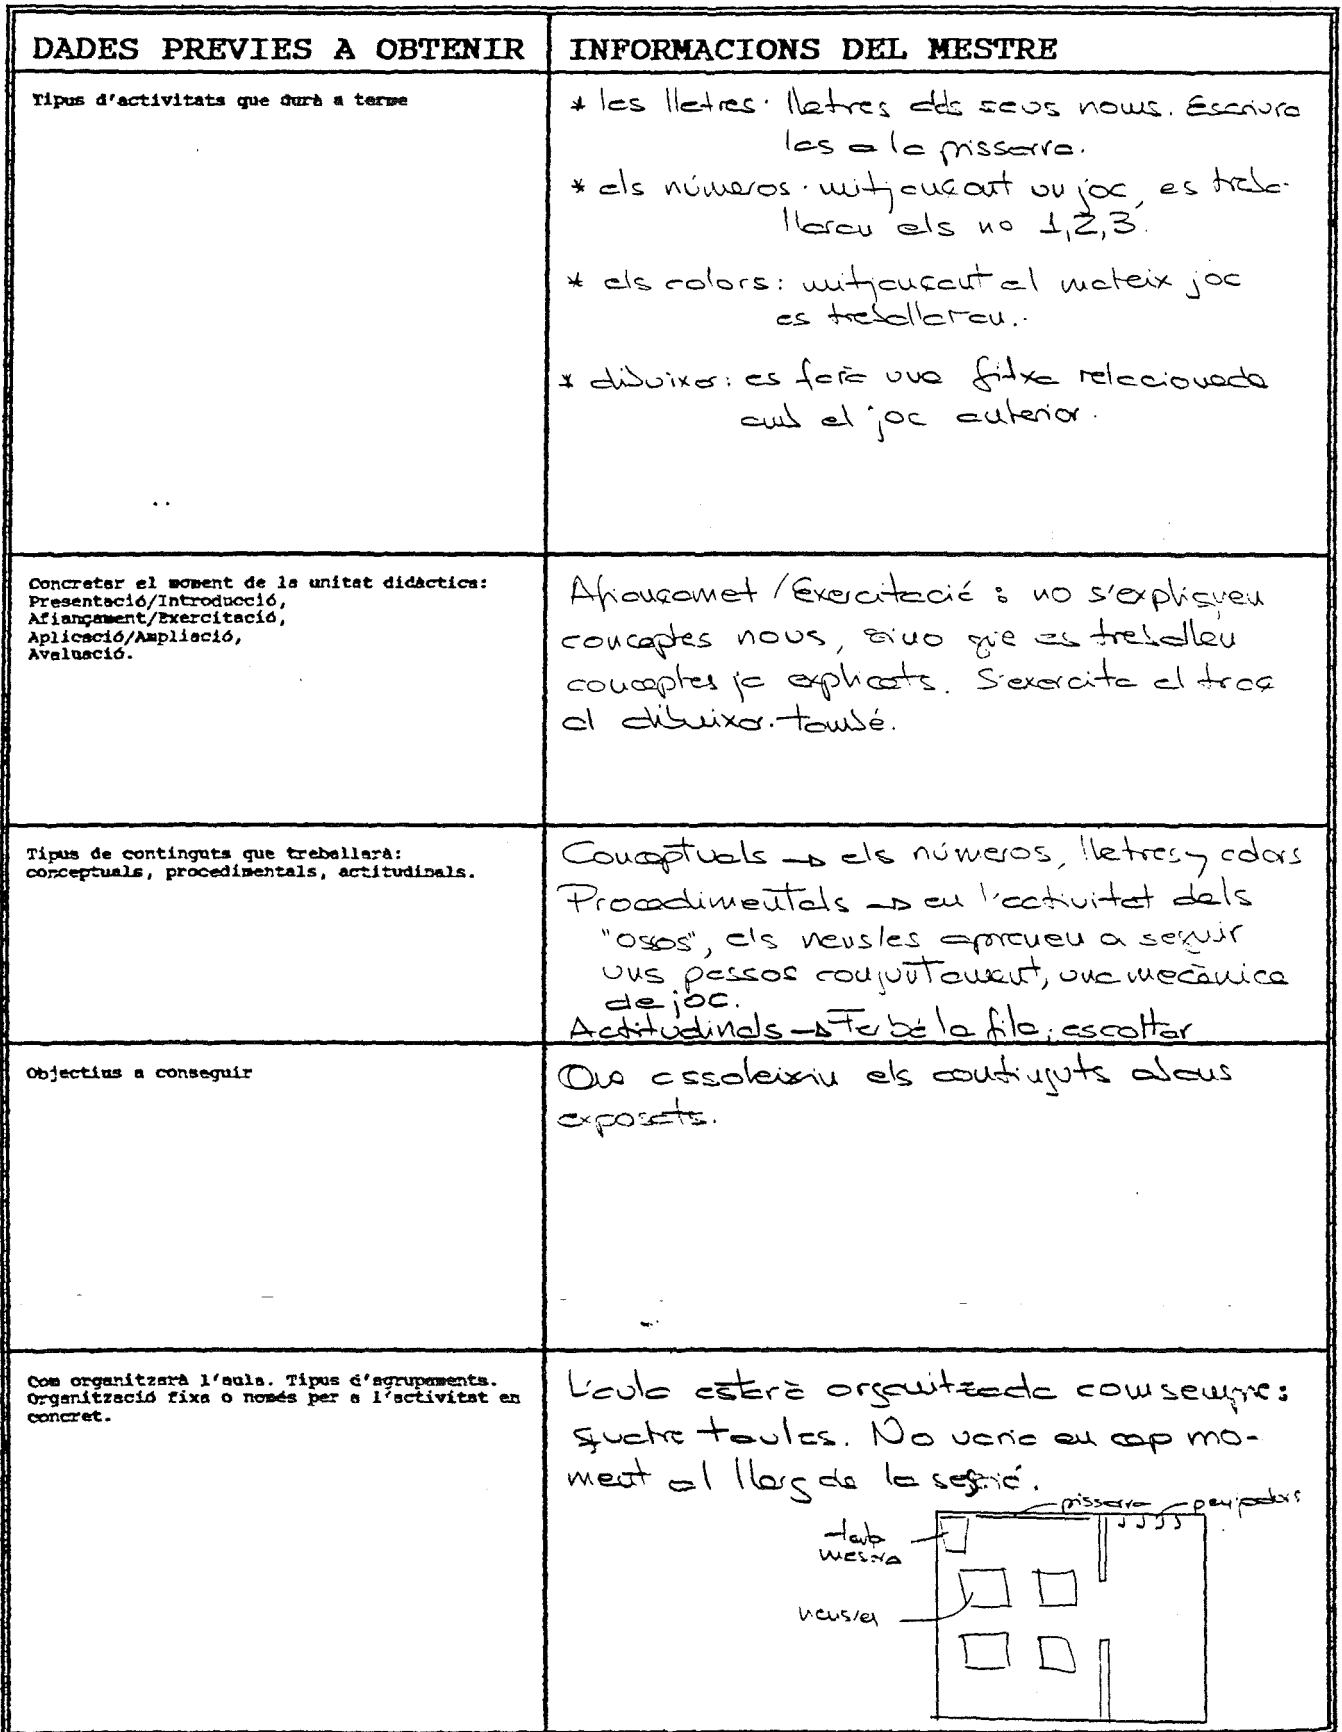 DADES PREVIES A OBTENIR
INFORMACIONS DEL MESTRE
Tipus d'activitats que durà a terme
* les lletres: lletres dels seus noms. Escriure
les a la pissarra.
* els números: mitjançant un joc, es treba-
llaran els nº 1,2,3.
* els colors: mitjançant el mateix joc
es treballaran.
* dibuixar: es farà una fitxa relacionada
amb el joc anterior.
Concretar el moment de la unitat didàctica:
Presentació/Introducció,
Afiançament/Exercitació,
Aplicació/Ampliació,
Avaluació.
Afiançamet / Exercitació: no s'expliquen
conceptes nous, sino que es treballen
conceptes ja explicats. S'exercita el traç
al dibuixar també.
Tipus de continguts que treballarà:
conceptuals, procedimentals, actitudinals.
Conceptuals → els números, lletres y colors
Procedimentals → en l'activitat dels
"osos", els nens/es aprenen a seguir
uns passos conjuntament, una mecànica
de joc.
Actitudinals → Fer bé la fila, escoltar
Objectius a conseguir
Que assoleixin els continguts abans
exposats.
Com organitzarà l'aula. Tipus d'agrupaments.
Organització fixa o només per a l'activitat en
concret.
L'aula estarà organitzada com sempre:
quatre taules. No varia en cap mo-
ment al llarg de la sessió.
pissarra penjadors
taula
mestra
nens/es